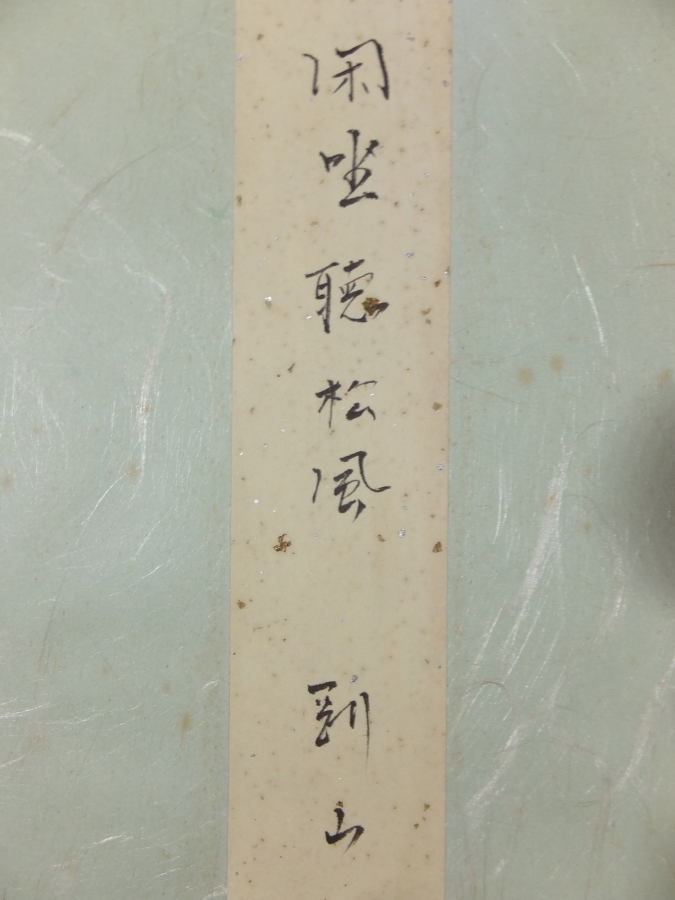 閑坐聴松風 剛山